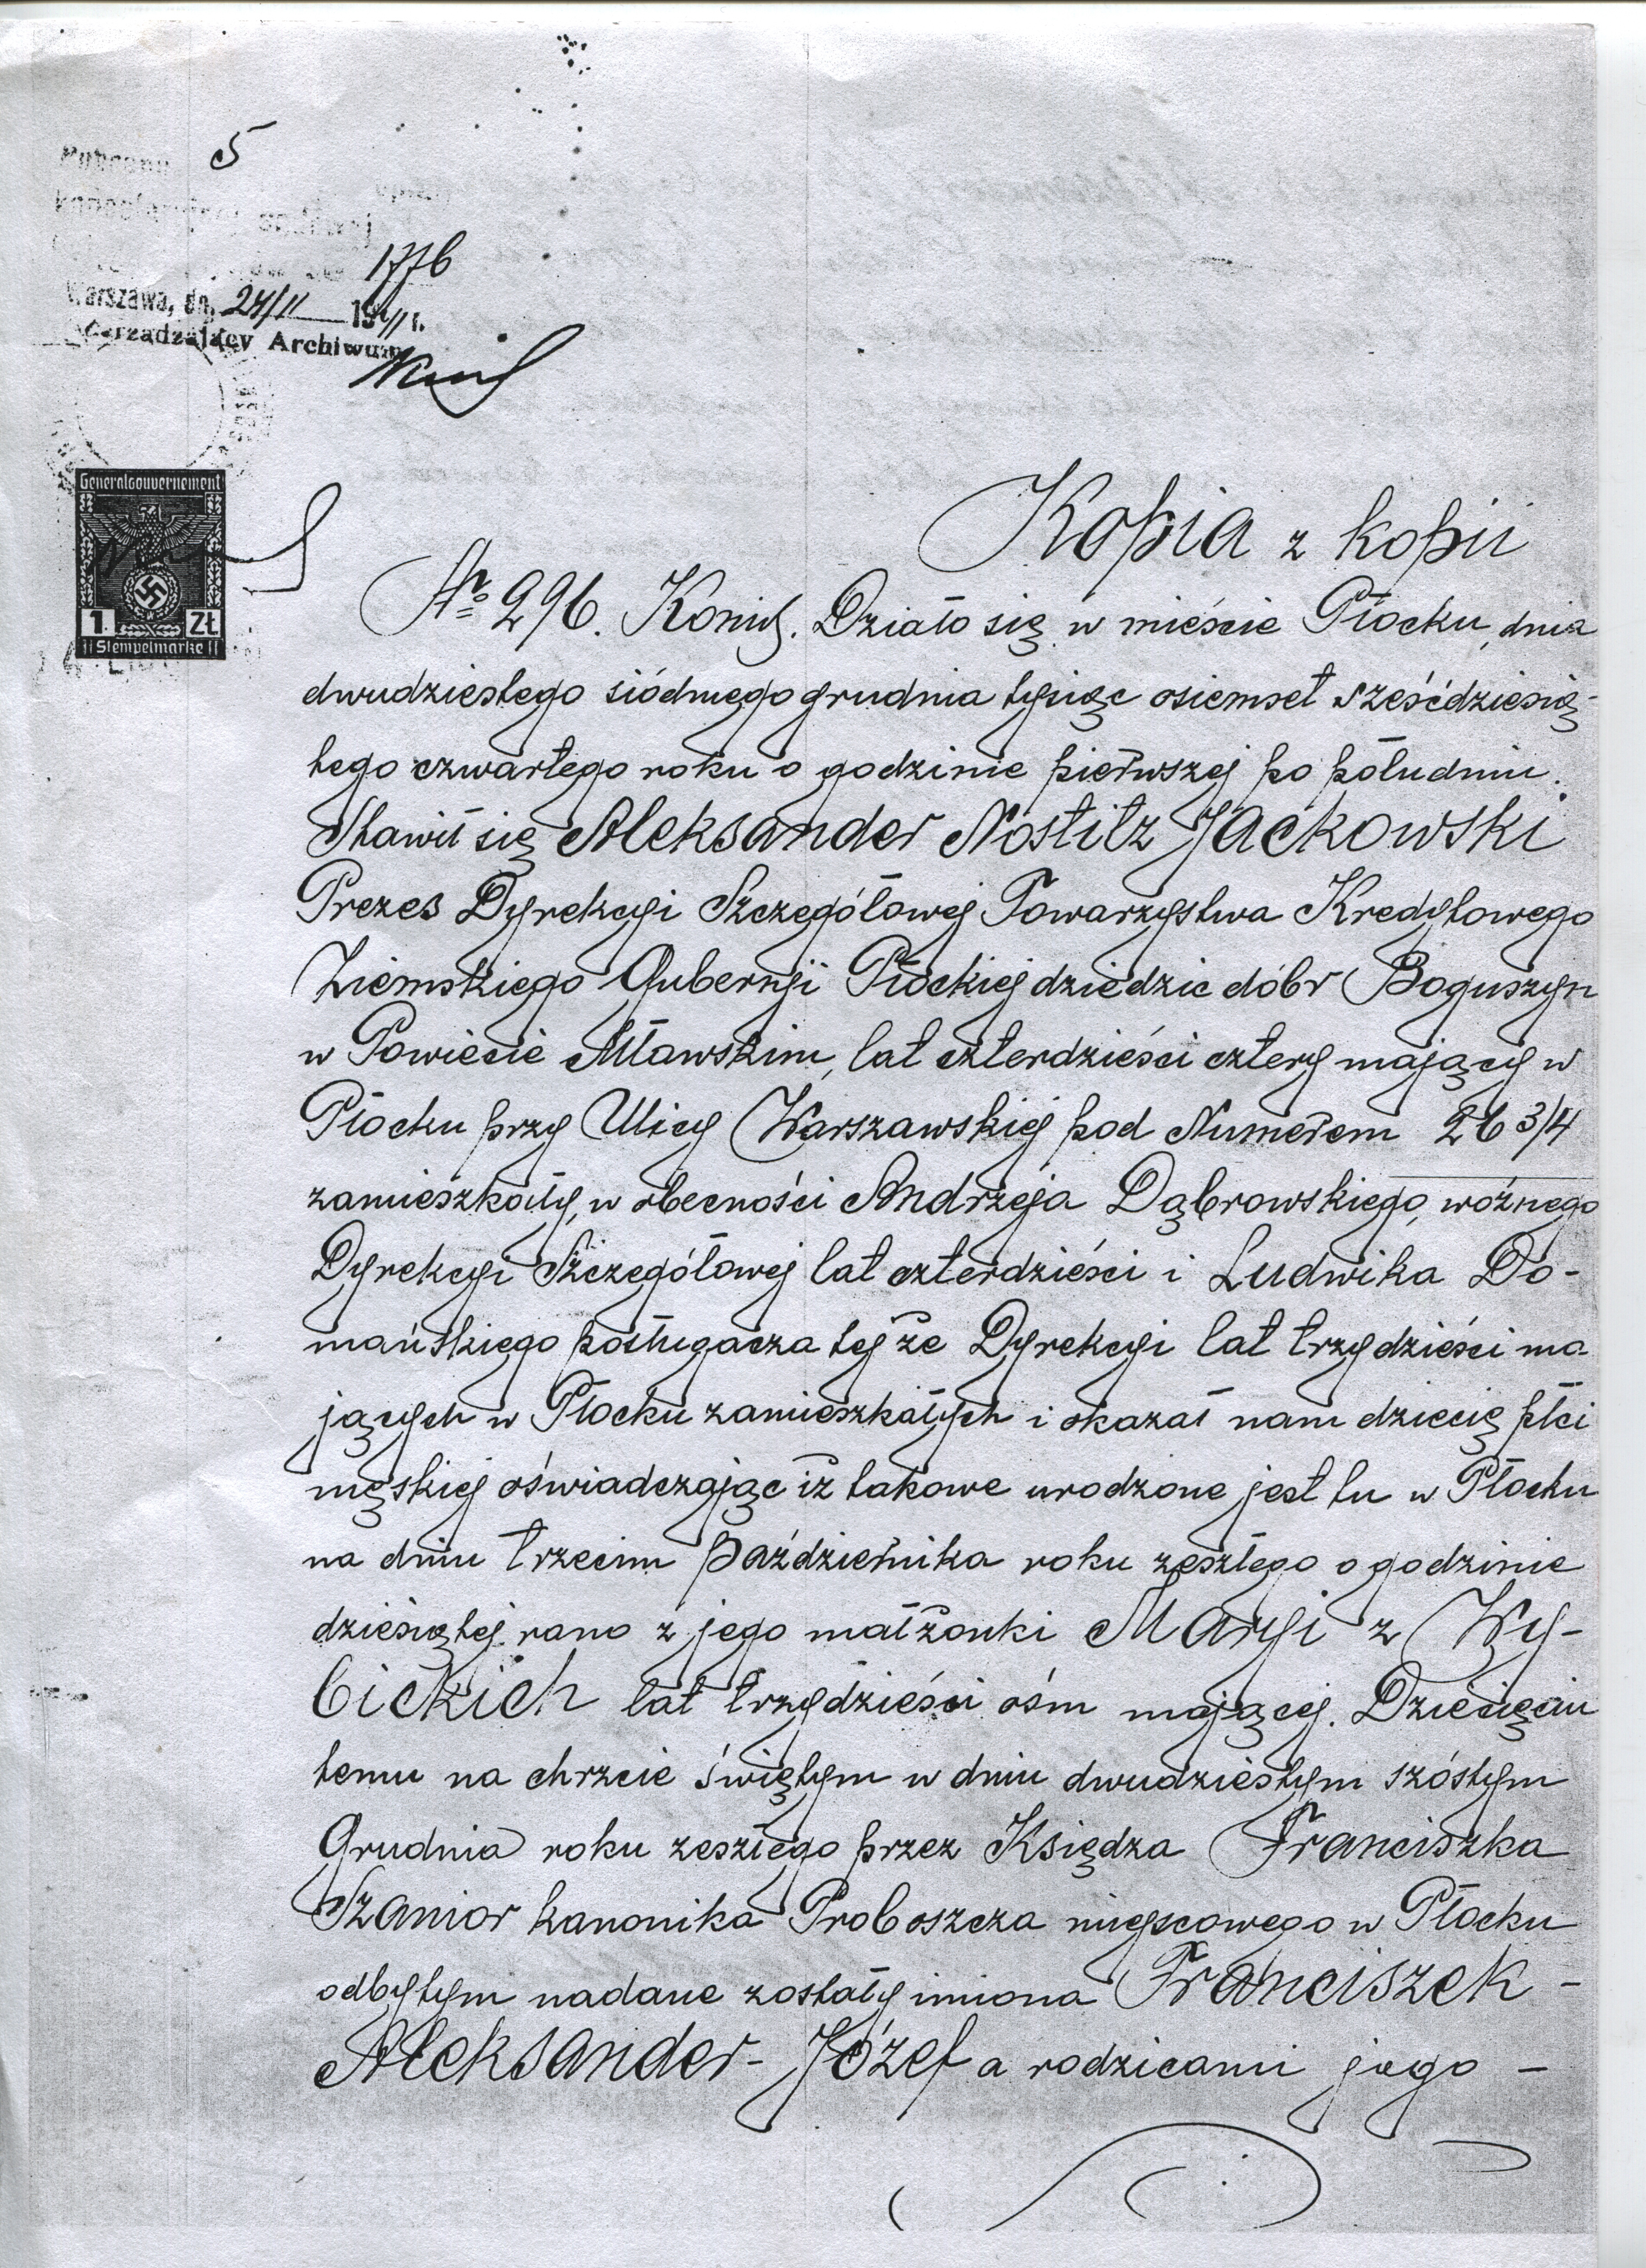 5
1776
Warszawa, dn. 24/II 1941 r.
Zarządzający Archiwum
Generalgouvernement
1 Zł
Stempelmarke
Kopia z kopii
№ 296. Działo się w mieście Płocku, dnia
dwudziestego siódmego grudnia tysiąc osiemset sześćdziesią-
tego czwartego roku o godzinie pierwszej po południu.
Stawił się Aleksander Nostitz Jackowski
Prezes Dyrekcyi Szczegółowej Towarzystwa Kredytowego
Ziemskiego Gubernji Płockiej dziedzic dóbr Boguszyn
w Powiecie Mławskim, lat czterdzieści cztery mający w
Płocku przy Ulicy Warszawskiej pod Numerem 26 3/4
zamieszkały, w obecności Andrzeja Dąbrowskiego, woźnego
Dyrekcyi Szczegółowej lat czterdzieści i Ludwika Do-
mańskiego posługacza tejże Dyrekcyi lat trzydzieści ma-
jących w Płocku zamieszkałych i okazał nam dziecię płci
męskiej oświadczając iż takowe urodzone jest tu w Płocku
na dniu trzecim października roku zeszłego o godzinie
dziesiątej rano z jego małżonki Maryi z Wy-
bickich lat trzydzieści ośm mającej. Dziecięciu
temu na chrzcie świętym w dniu dwudziestym szóstym
Grudnia roku zeszłego przez Księdza Franciszka
Szanior kanonika Proboszcza miejscowego w Płocku
odbytym nadane zostały imiona Franciszek -
Aleksander - Józef a rodzicami jego -